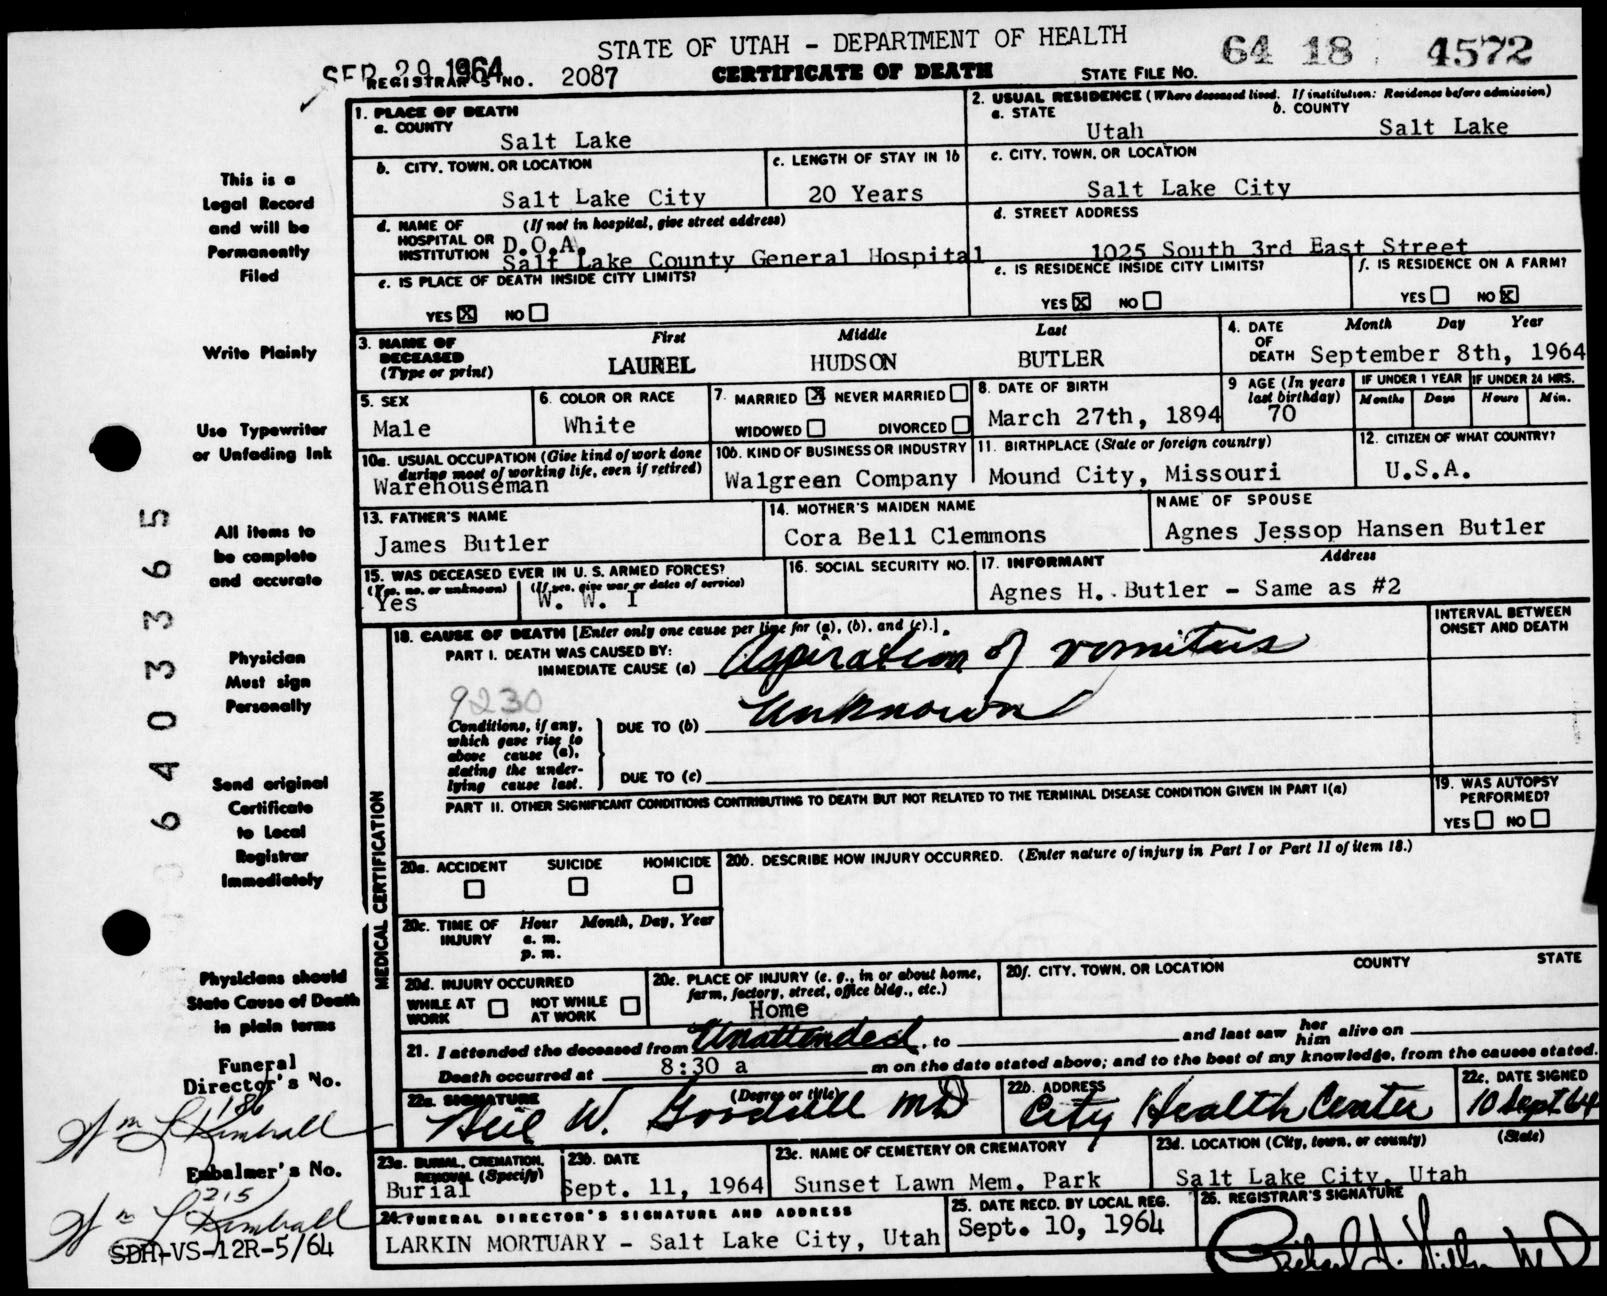 STATE OF UTAH - DEPARTMENT OF HEALTH
64 18 4572
SEP 29 1964
REGISTRAR'S NO. 2087
CERTIFICATE OF DEATH
STATE FILE NO.
1. PLACE OF DEATH
a. COUNTY
Salt Lake
2. USUAL RESIDENCE (Where deceased lived. If institution: Residence before admission)
a. STATE
Utah
b. COUNTY
Salt Lake
b. CITY, TOWN, OR LOCATION
Salt Lake City
c. LENGTH OF STAY IN 1b
20 Years
c. CITY, TOWN, OR LOCATION
Salt Lake City
d. NAME OF HOSPITAL OR INSTITUTION
(If not in hospital, give street address)
D.O.A.
Salt Lake County General Hospital
d. STREET ADDRESS
1025 South 3rd East Street
e. IS PLACE OF DEATH INSIDE CITY LIMITS?
YES X NO
e. IS RESIDENCE INSIDE CITY LIMITS?
YES X NO
f. IS RESIDENCE ON A FARM?
YES NO X
3. NAME OF DECEASED (Type or print)
First Middle Last
LAUREL HUDSON BUTLER
4. DATE OF DEATH
Month Day Year
September 8th, 1964
5. SEX
Male
6. COLOR OR RACE
White
7. MARRIED X NEVER MARRIED
WIDOWED DIVORCED
8. DATE OF BIRTH
March 27th, 1894
9 AGE (In years last birthday)
70
IF UNDER 1 YEAR
Months Days
IF UNDER 24 HRS.
Hours Min.
10a. USUAL OCCUPATION (Give kind of work done during most of working life, even if retired)
Warehouseman
10b. KIND OF BUSINESS OR INDUSTRY
Walgreen Company
11. BIRTHPLACE (State or foreign country)
Mound City, Missouri
12. CITIZEN OF WHAT COUNTRY?
U.S.A.
13. FATHER'S NAME
James Butler
14. MOTHER'S MAIDEN NAME
Cora Bell Clemmons
NAME OF SPOUSE
Agnes Jessop Hansen Butler
15. WAS DECEASED EVER IN U. S. ARMED FORCES?
(Yes, no, or unknown) (If yes, give war or dates of service)
Yes W. W. I
16. SOCIAL SECURITY NO.
17. INFORMANT Address
Agnes H. Butler - Same as #2
MEDICAL CERTIFICATION
18. CAUSE OF DEATH [Enter only one cause per line for (a), (b), and (c).]
INTERVAL BETWEEN ONSET AND DEATH
PART I. DEATH WAS CAUSED BY:
IMMEDIATE CAUSE (a) Aspiration of vomitus
9230
Conditions, if any, which gave rise to above cause (a), stating the underlying cause last.
DUE TO (b) Unknown
DUE TO (c)
PART II. OTHER SIGNIFICANT CONDITIONS CONTRIBUTING TO DEATH BUT NOT RELATED TO THE TERMINAL DISEASE CONDITION GIVEN IN PART I(a)
19. WAS AUTOPSY PERFORMED?
YES NO
20a. ACCIDENT SUICIDE HOMICIDE
20b. DESCRIBE HOW INJURY OCCURRED. (Enter nature of injury in Part I or Part II of item 18.)
20c. TIME OF INJURY
Hour Month, Day, Year
a. m.
p. m.
20d. INJURY OCCURRED
WHILE AT WORK NOT WHILE AT WORK
20e. PLACE OF INJURY (e. g., in or about home, farm, factory, street, office bldg., etc.)
Home
20f. CITY, TOWN, OR LOCATION COUNTY STATE
21. I attended the deceased from Unattended, to and last saw her him alive on
Death occurred at 8:30 a m on the date stated above; and to the best of my knowledge, from the causes stated.
22a. SIGNATURE (Degree or title)
Neil W. MD
22b. ADDRESS
City Health Center
22c. DATE SIGNED
10 Sept 64
23a. BURIAL, CREMATION, REMOVAL (Specify)
Burial
23b. DATE
Sept. 11, 1964
23c. NAME OF CEMETERY OR CREMATORY
Sunset Lawn Mem. Park
23d. LOCATION (City, town, or county) (State)
Salt Lake City, Utah
24. FUNERAL DIRECTOR'S SIGNATURE AND ADDRESS
LARKIN MORTUARY - Salt Lake City, Utah
25. DATE RECD. BY LOCAL REG.
Sept. 10, 1964
26. REGISTRAR'S SIGNATURE
This is a
Legal Record
and will be
Permanently
Filed
Write Plainly
Use Typewriter
or Unfading Ink
All items to
be complete
and accurate
Physician
Must sign
Personally
Send original
Certificate
to Local
Registrar
Immediately
Physicians should
State Cause of Death
in plain terms
Funeral
Director's No.
186
Wm L Kimball
Embalmer's No.
215
Wm L Kimball
SDH-VS-12R-5/64
6403365